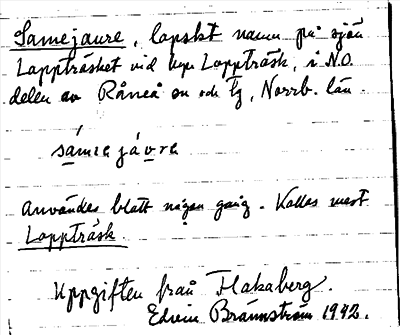 Samejaure, lapskt namn på sjön
Lappträsket vid byn Lappträsk, i N.O.
delen av Råneå sn och tg, Norrb. län.
sámie jávre
Användes blott någon gång. Kallas mest
Lappträsk.
Uppgiften från Flakaberg.
Edvin Brännström 1942.